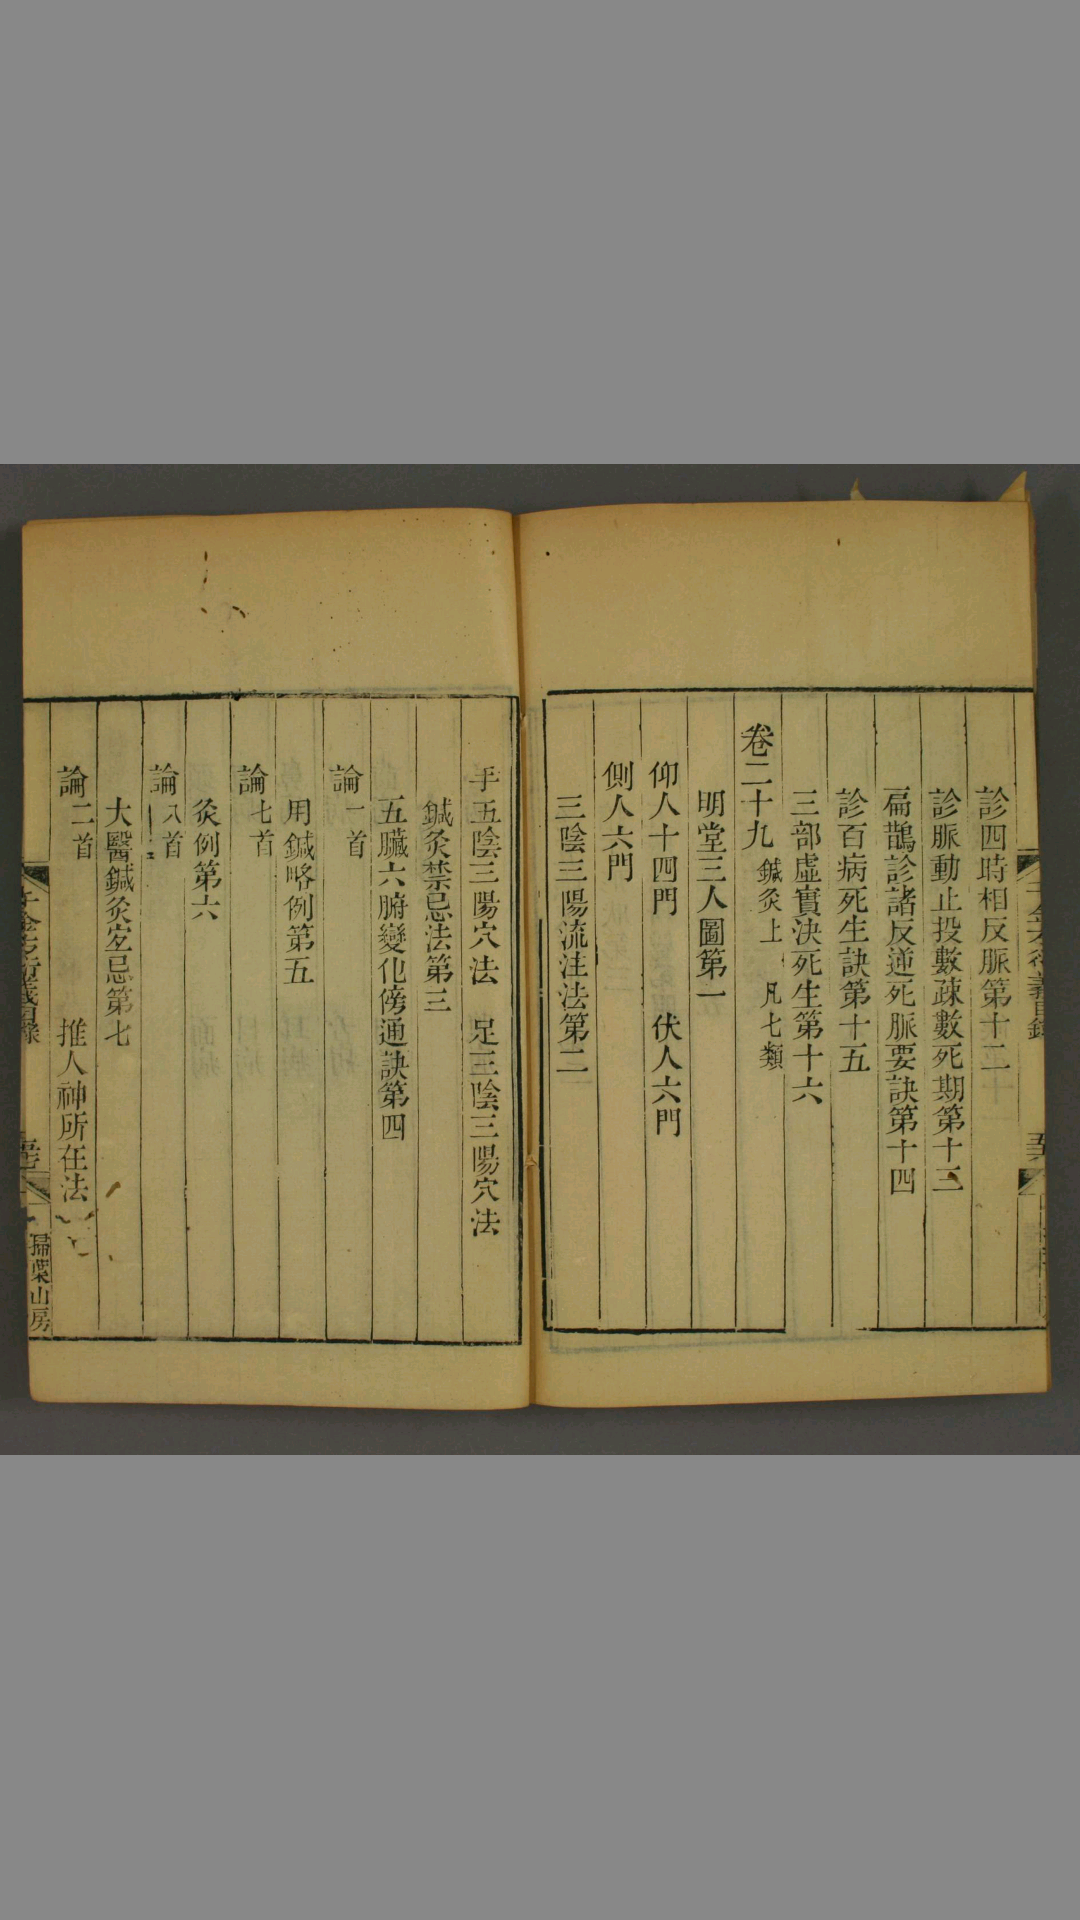 診四時相反脈第十二
診脈動止投數疎數死期第十三
扁鵲診諸反逆死脈要訣第十四
診百病死生訣第十五
三部虛實決死生第十六
卷二十九 鍼灸上 凡七類
明堂三人圖第一
仰人十四門 伏人六門
側人六門
三陰三陽流注法第二
手五陰三陽穴法 足三陰三陽穴法
鍼灸禁忌法第三
五臟六腑變化傍通訣第四
論一首
用鍼略例第五
論七首
灸例第六
論八首
大醫鍼灸宐忌第七
論二首 推人神所在法
千金方衍義目錄
掃葉山房